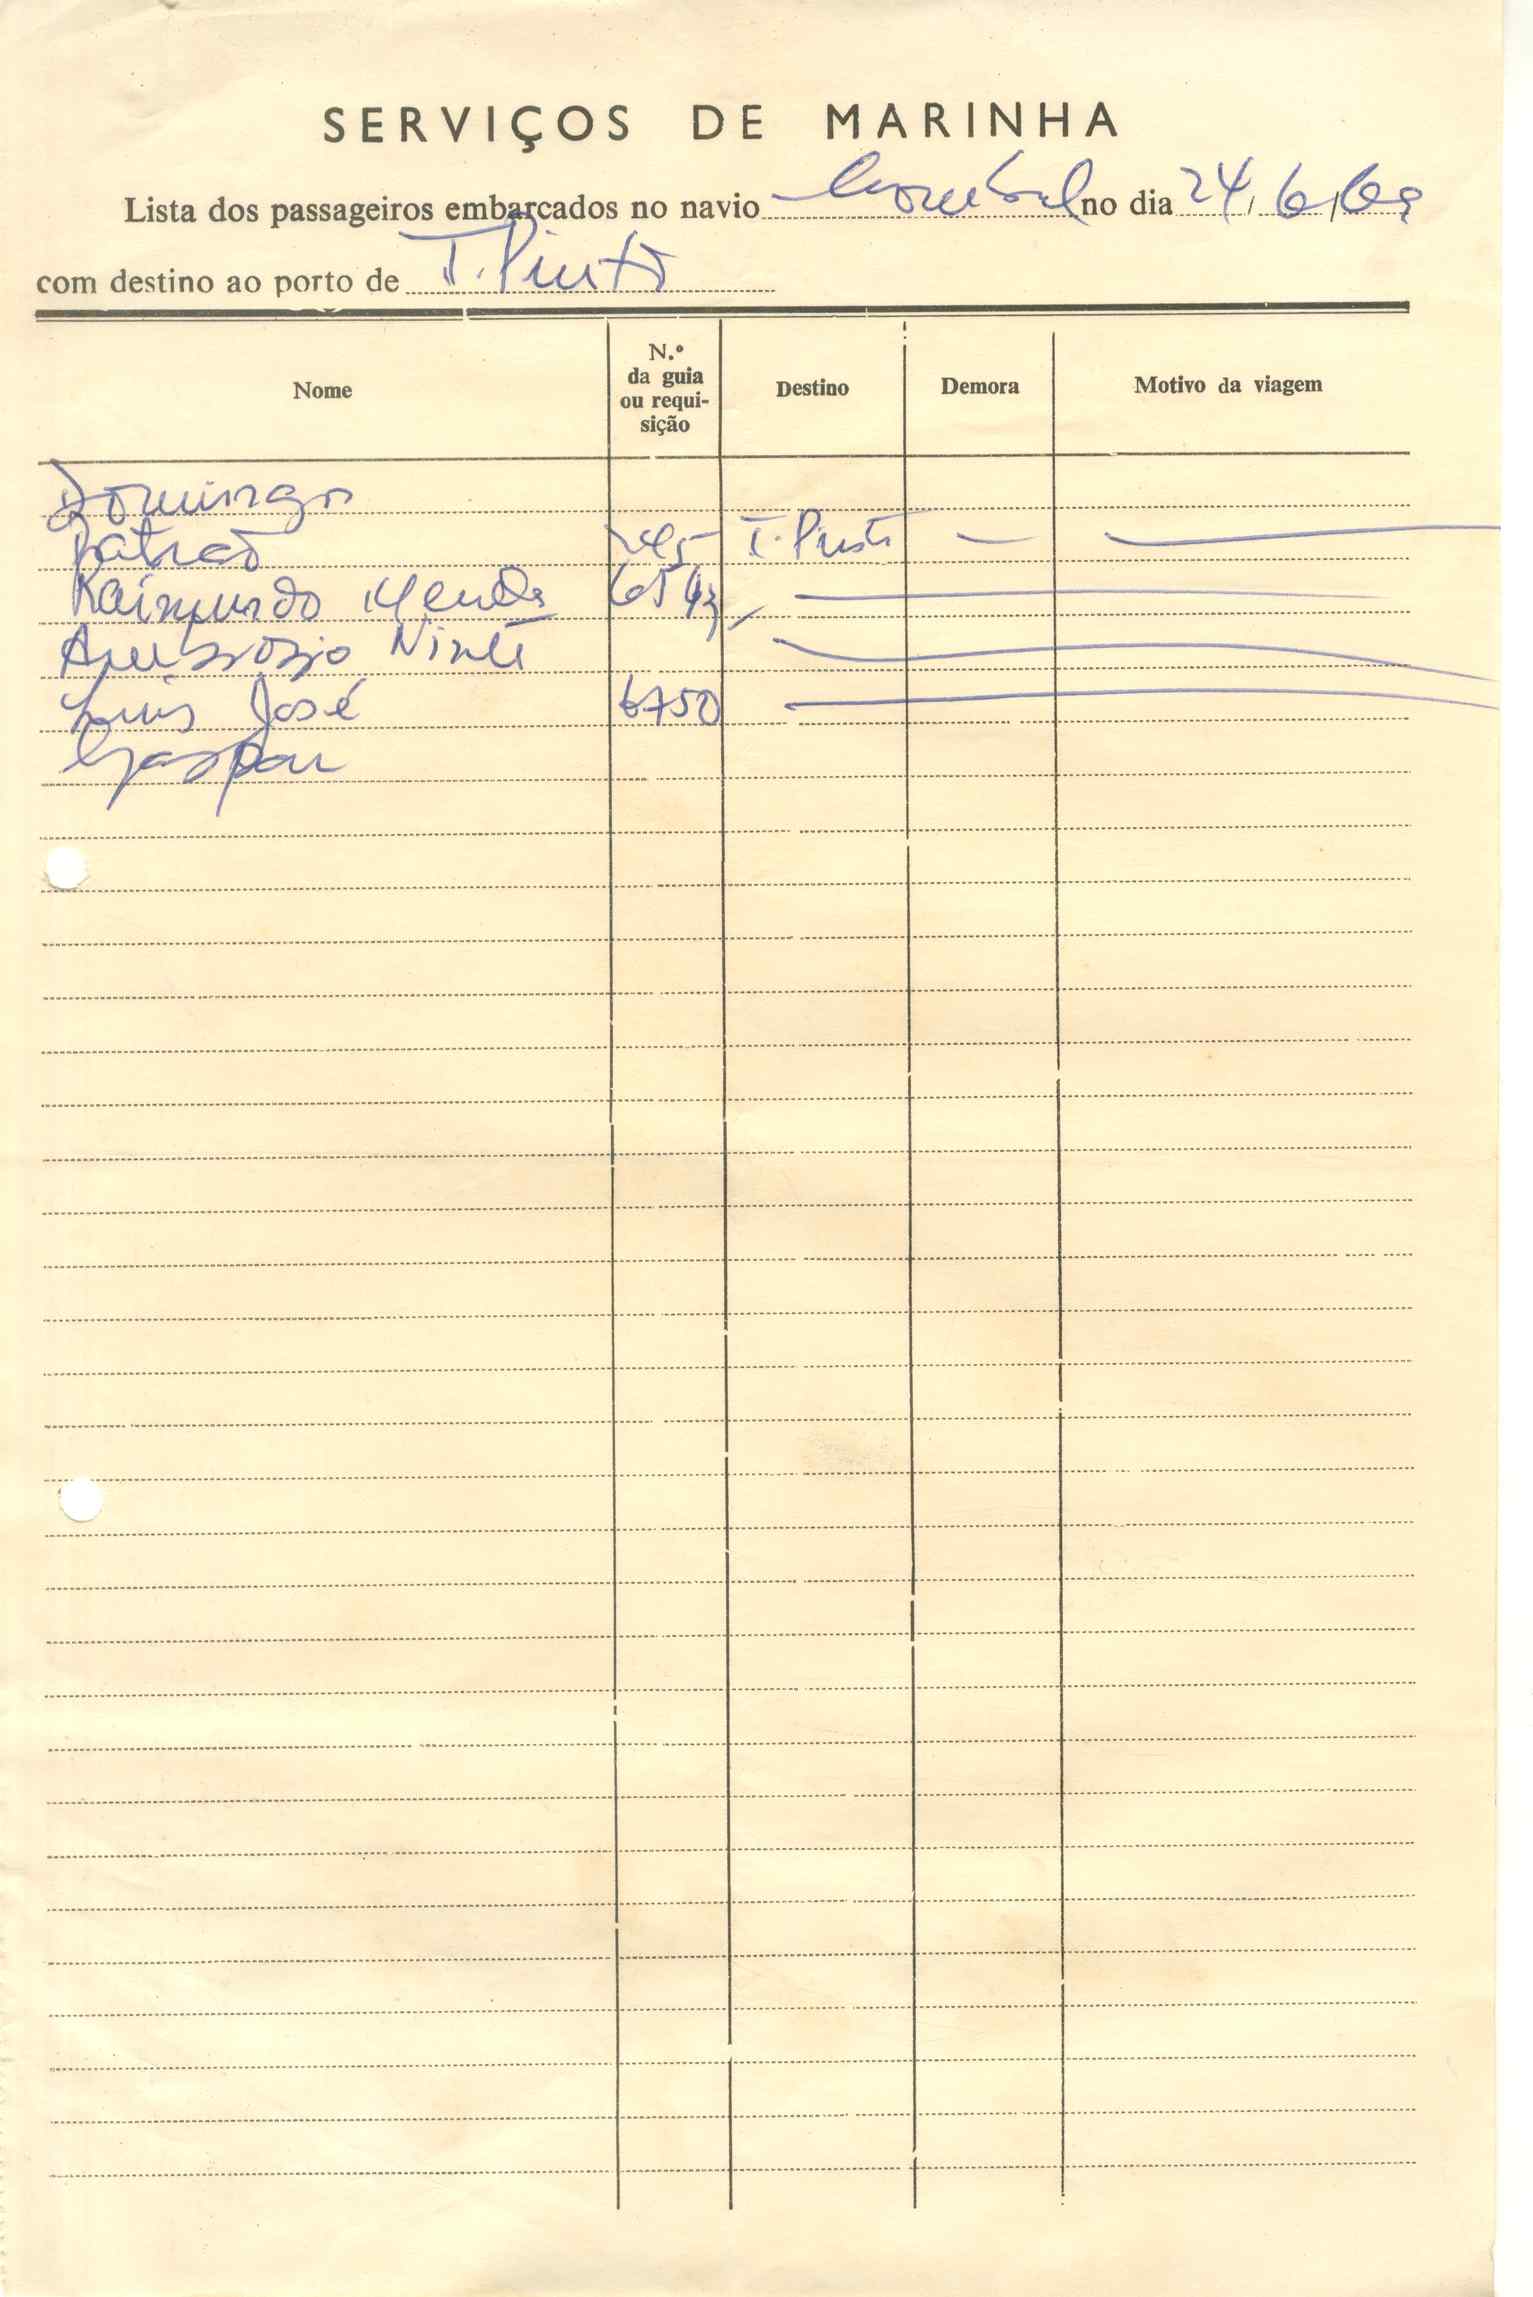 SERVIÇOS DE MARINHA
Lista dos passageiros embarcados no navio no dia 24, 6, 69
com destino ao porto de T. Pinto
Nome
N.º da guia ou requisição
Destino
Demora
Motivo da viagem
Domingos
Patrão 245 T. Pinto — —
Raimundo Mendes 6543
Ambrosio
Luis José 6750
Gaspar